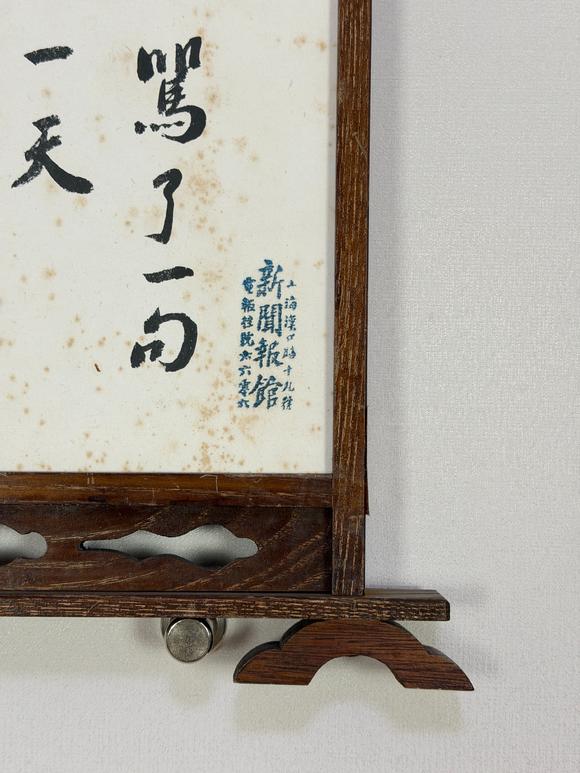 上海漢口路十九號
新聞報館
電報挂號六六零六
罵了一句
一天